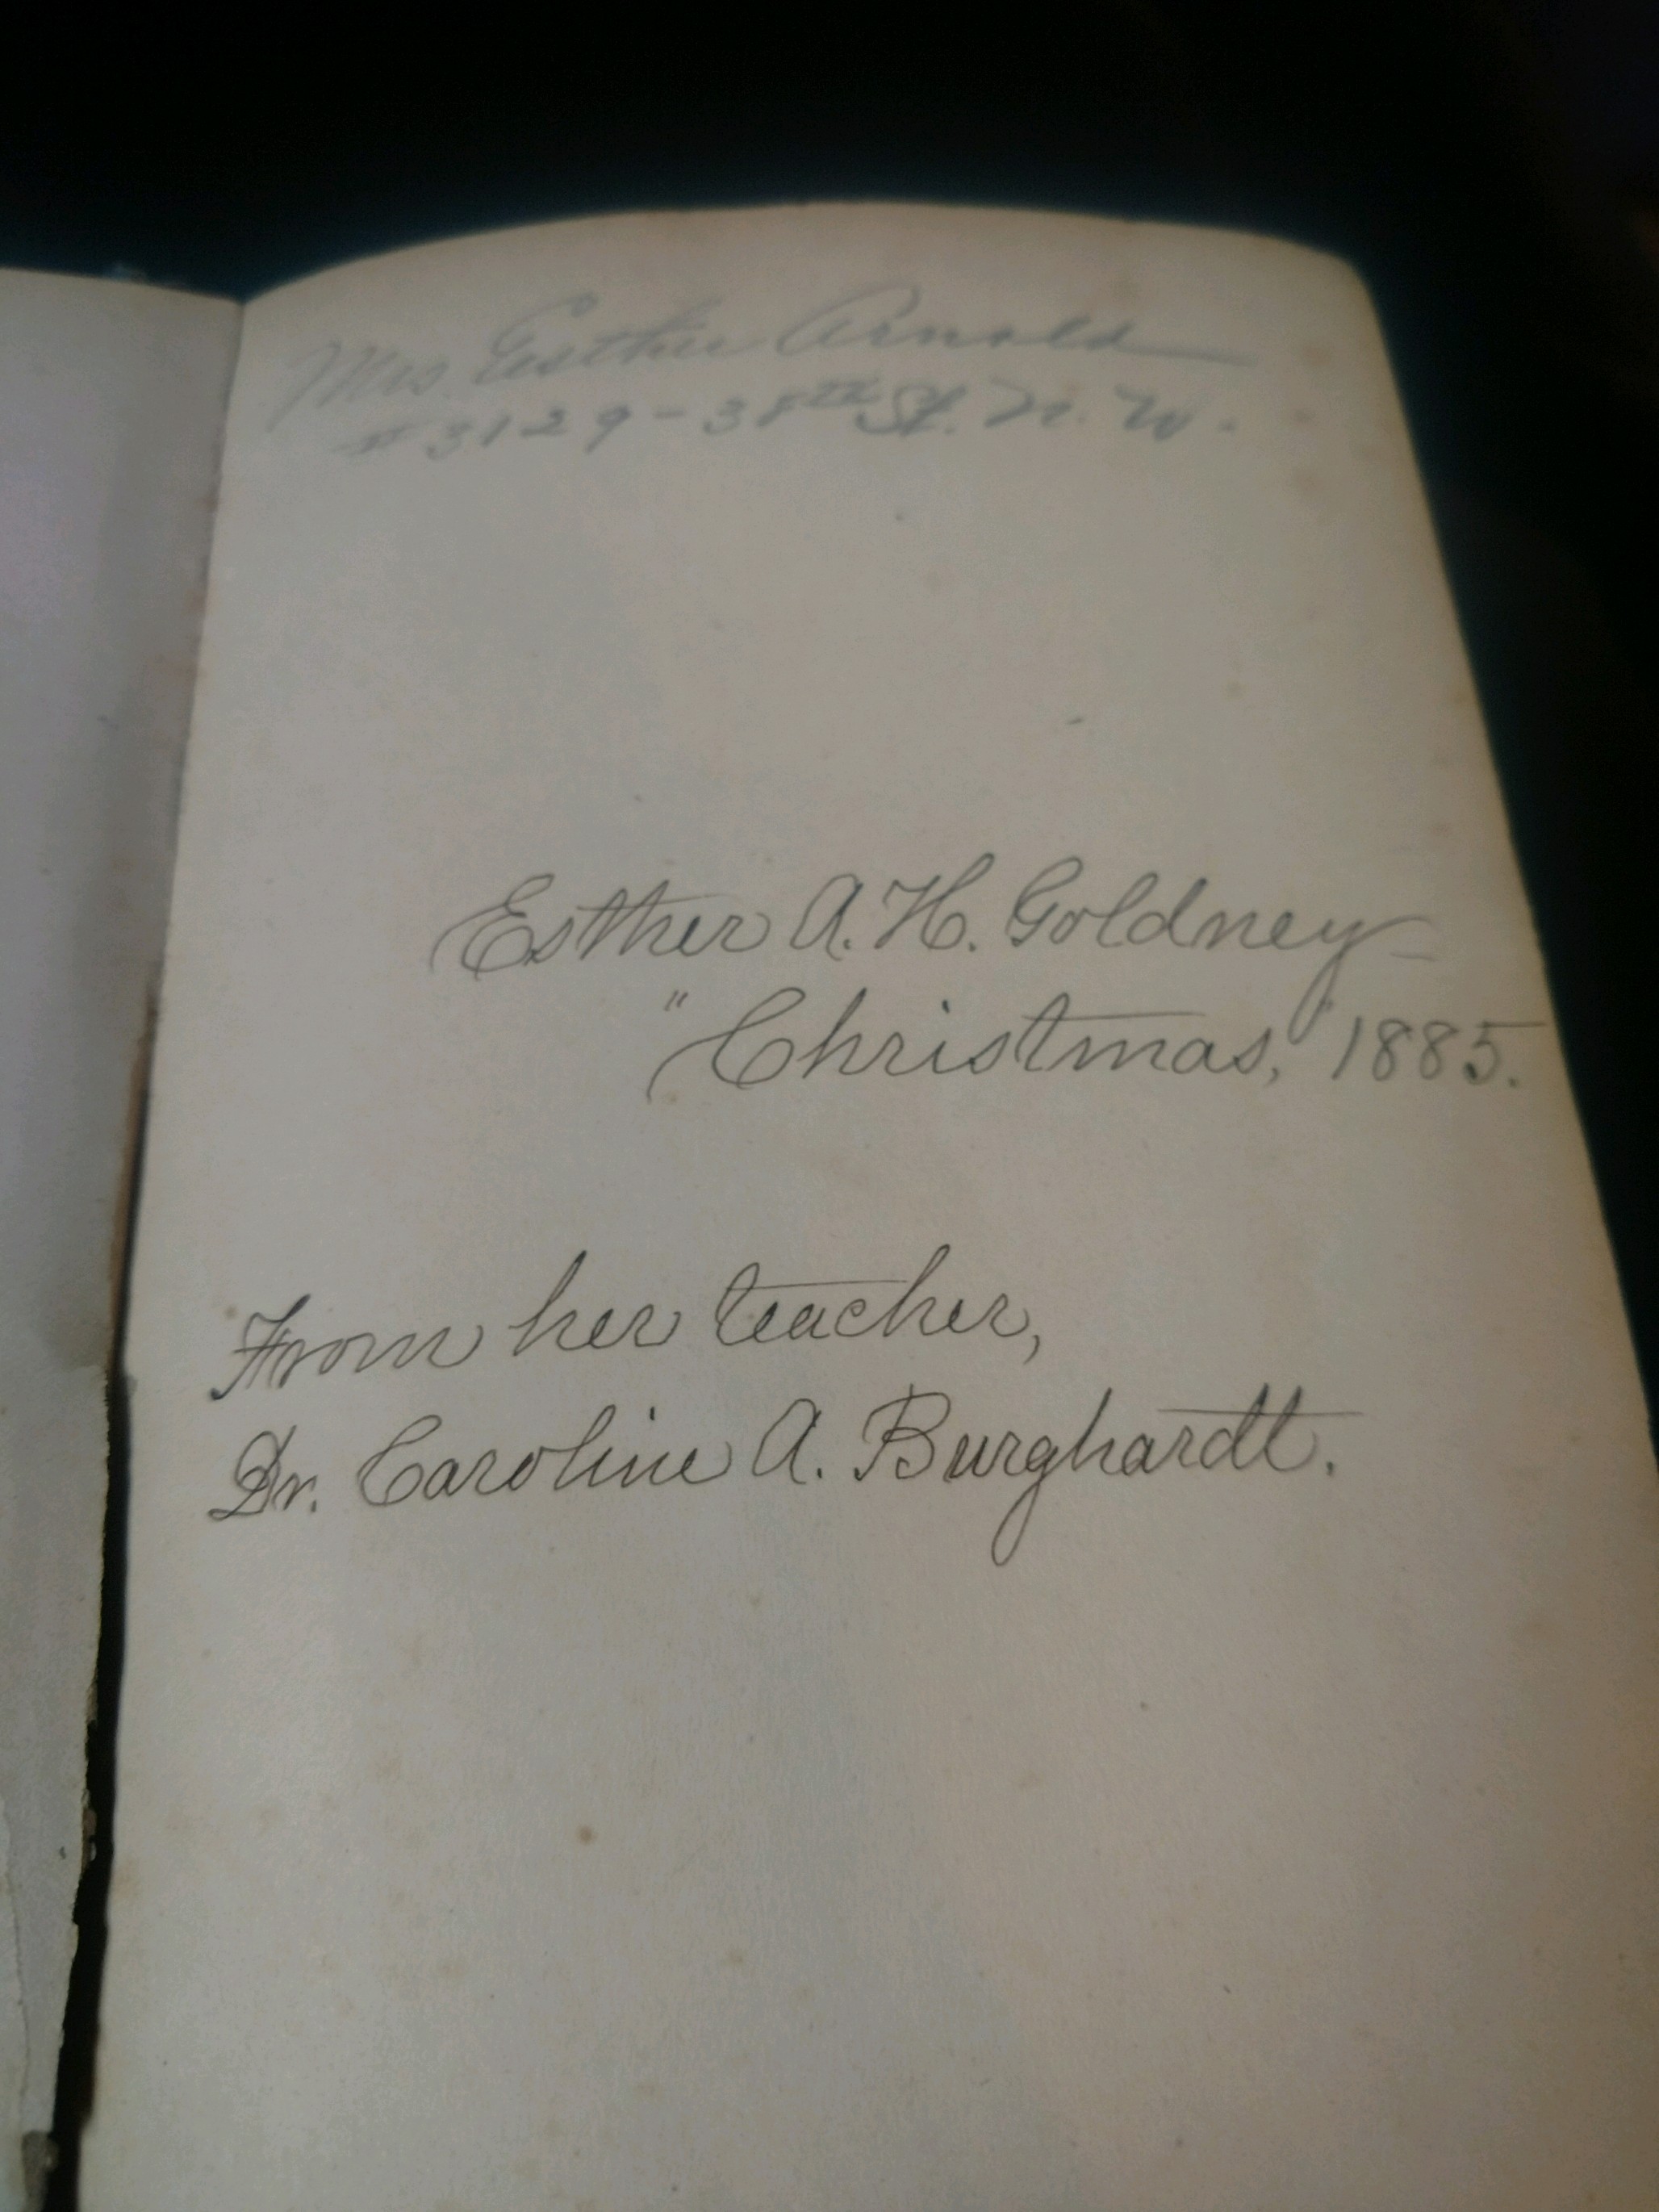 Mrs. Esther Arnold
#3129-38th St. N. W.
Esther A. H. Goldney
" Christmas, 1885.
From her teacher,
Dr. Caroline A. Burghardt.